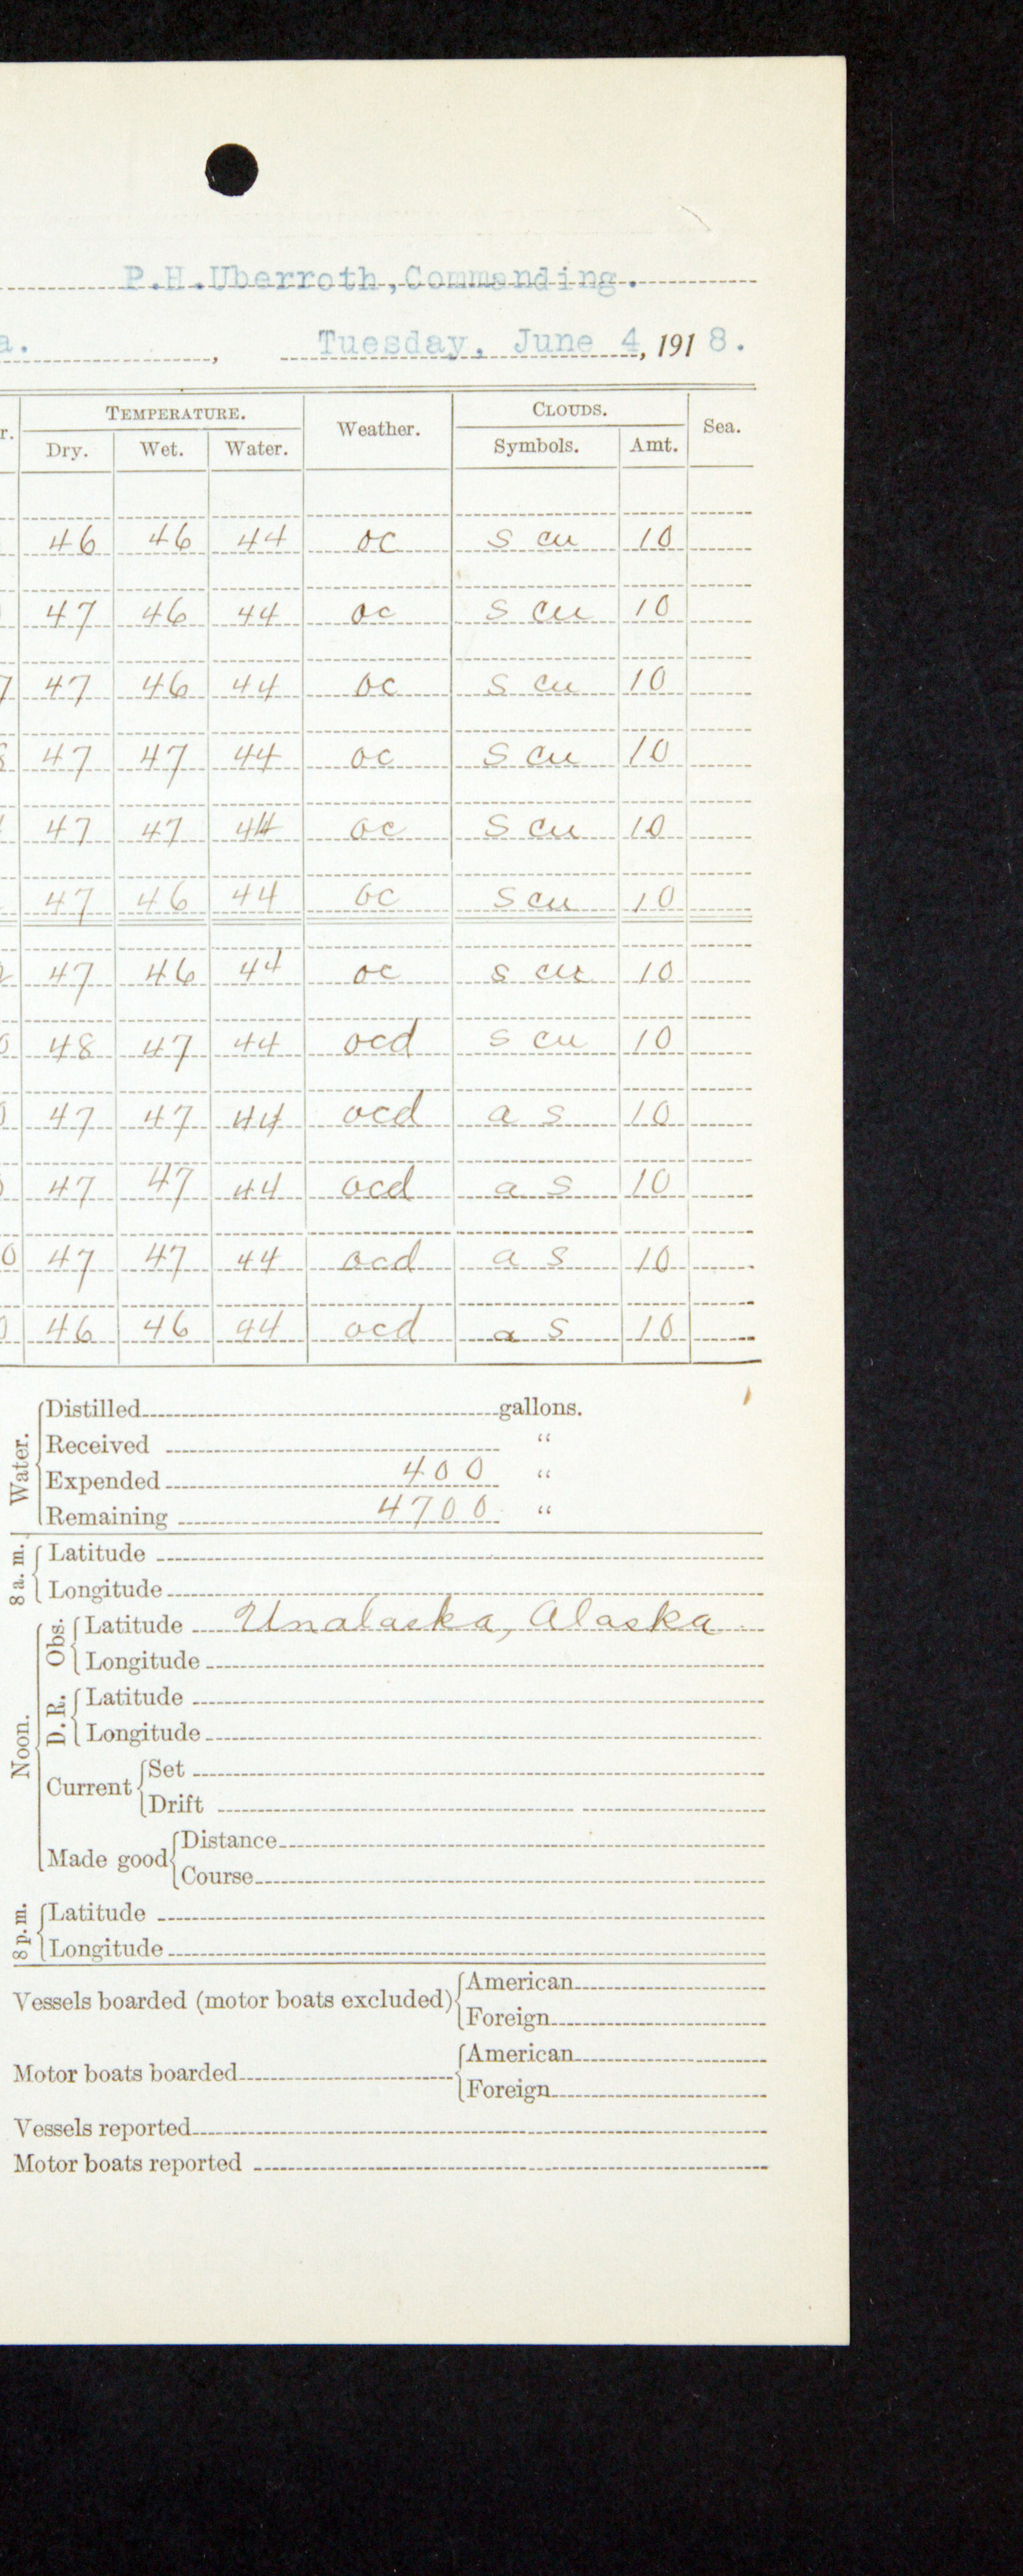 P.H.Uberroth, Commanding.
a. , Tuesday, June 4, 1918.
r. TEMPERATURE. Weather. CLOUDS. Sea.
Dry. Wet. Water. Symbols. Amt.
46 46 44 oc s cu 10
47 46 44 oc s cu 10
7 47 46 44 oc s cu 10
8 47 47 44 oc s cu 10
47 47 44 oc s cu 10
47 46 44 oc s cu 10
2 47 46 44 oc s cu 10
0 48 47 44 ocd s cu 10
0 47 47 44 ocd a s 10
0 47 47 44 ocd a s 10
0 47 47 44 ocd a s 10
0 46 46 44 ocd a s 10
Water.
Distilled gallons.
Received "
Expended 400 "
Remaining 4700 "
8 a. m.
Latitude
Longitude
Noon.
Obs.
Latitude Unalaska, Alaska
Longitude
D. R.
Latitude
Longitude
Current
Set
Drift
Made good
Distance
Course
8 p. m.
Latitude
Longitude
Vessels boarded (motor boats excluded)
American
Foreign
Motor boats boarded
American
Foreign
Vessels reported
Motor boats reported